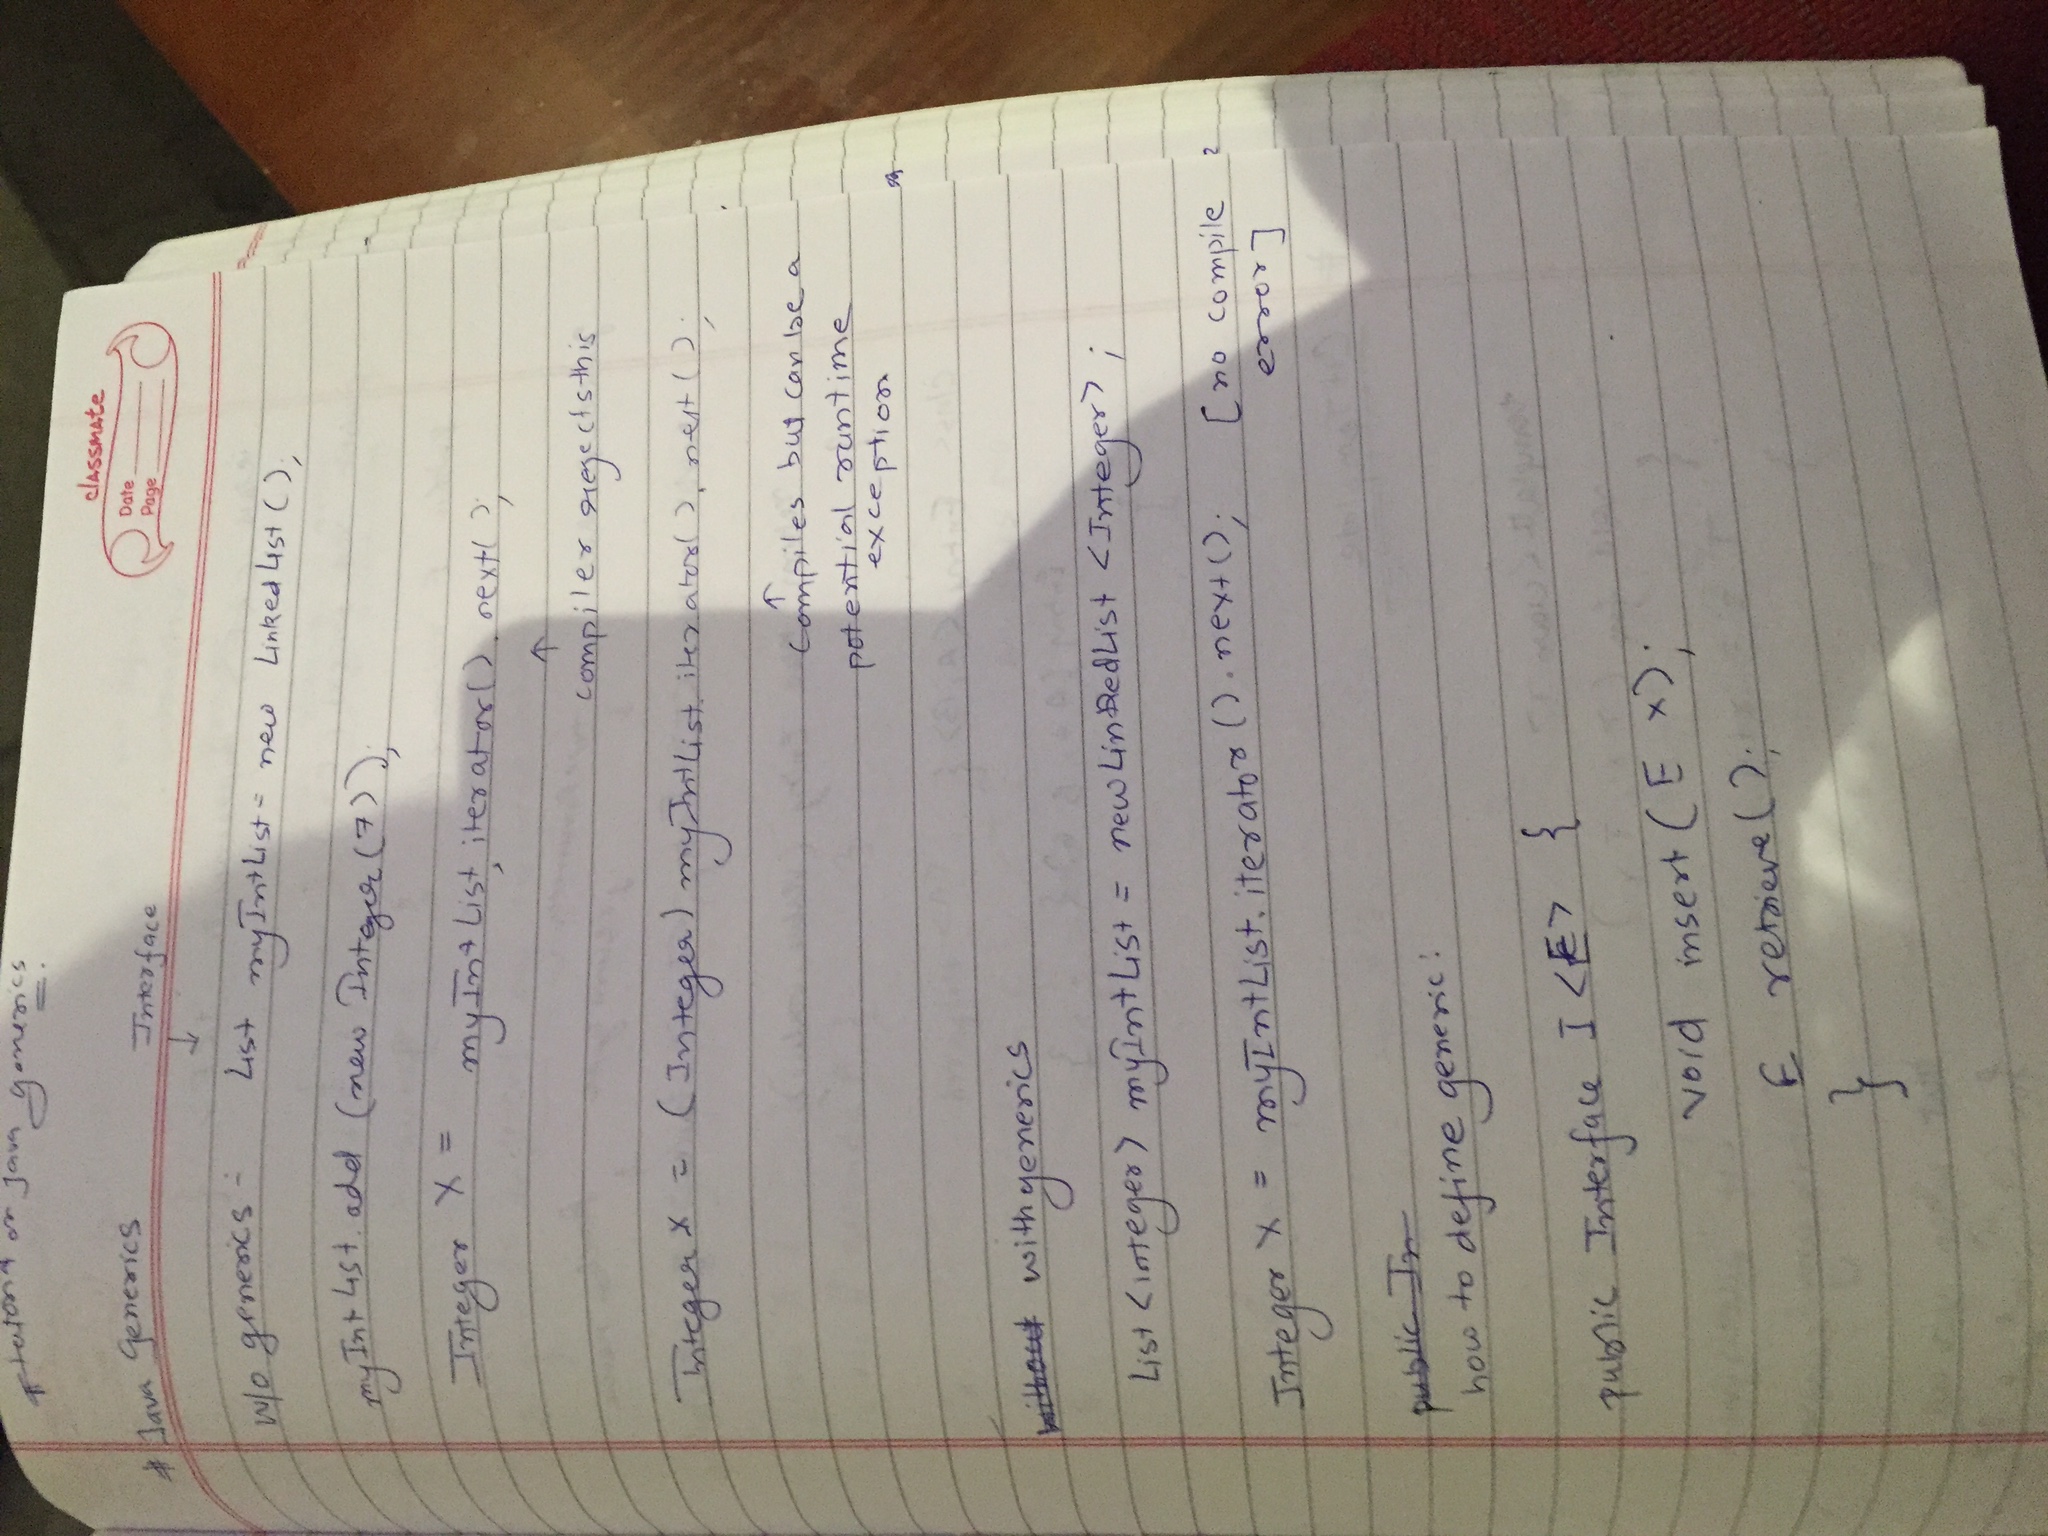 # Iterators on Java generics.
classmate
Date
Page
# Java Generics Interface
↓
W/o generics :- List myIntList = new LinkedList();
myIntList.add (new Integer(7));
Integer X = myIntList.iterator().next();
↑
compiler rejects this
Integer X = (Integer) myIntList.iterator().next();
↑
Compiles but can be a
potential runtime
exception
without with generics
List <integer> myIntList = new LinkedList <Integer>;
Integer X = myIntList.iterator().next(); [no compile
error]
public In
how to define generic:
public Interface I <E> {
void insert (E x);
E retrieve();
}